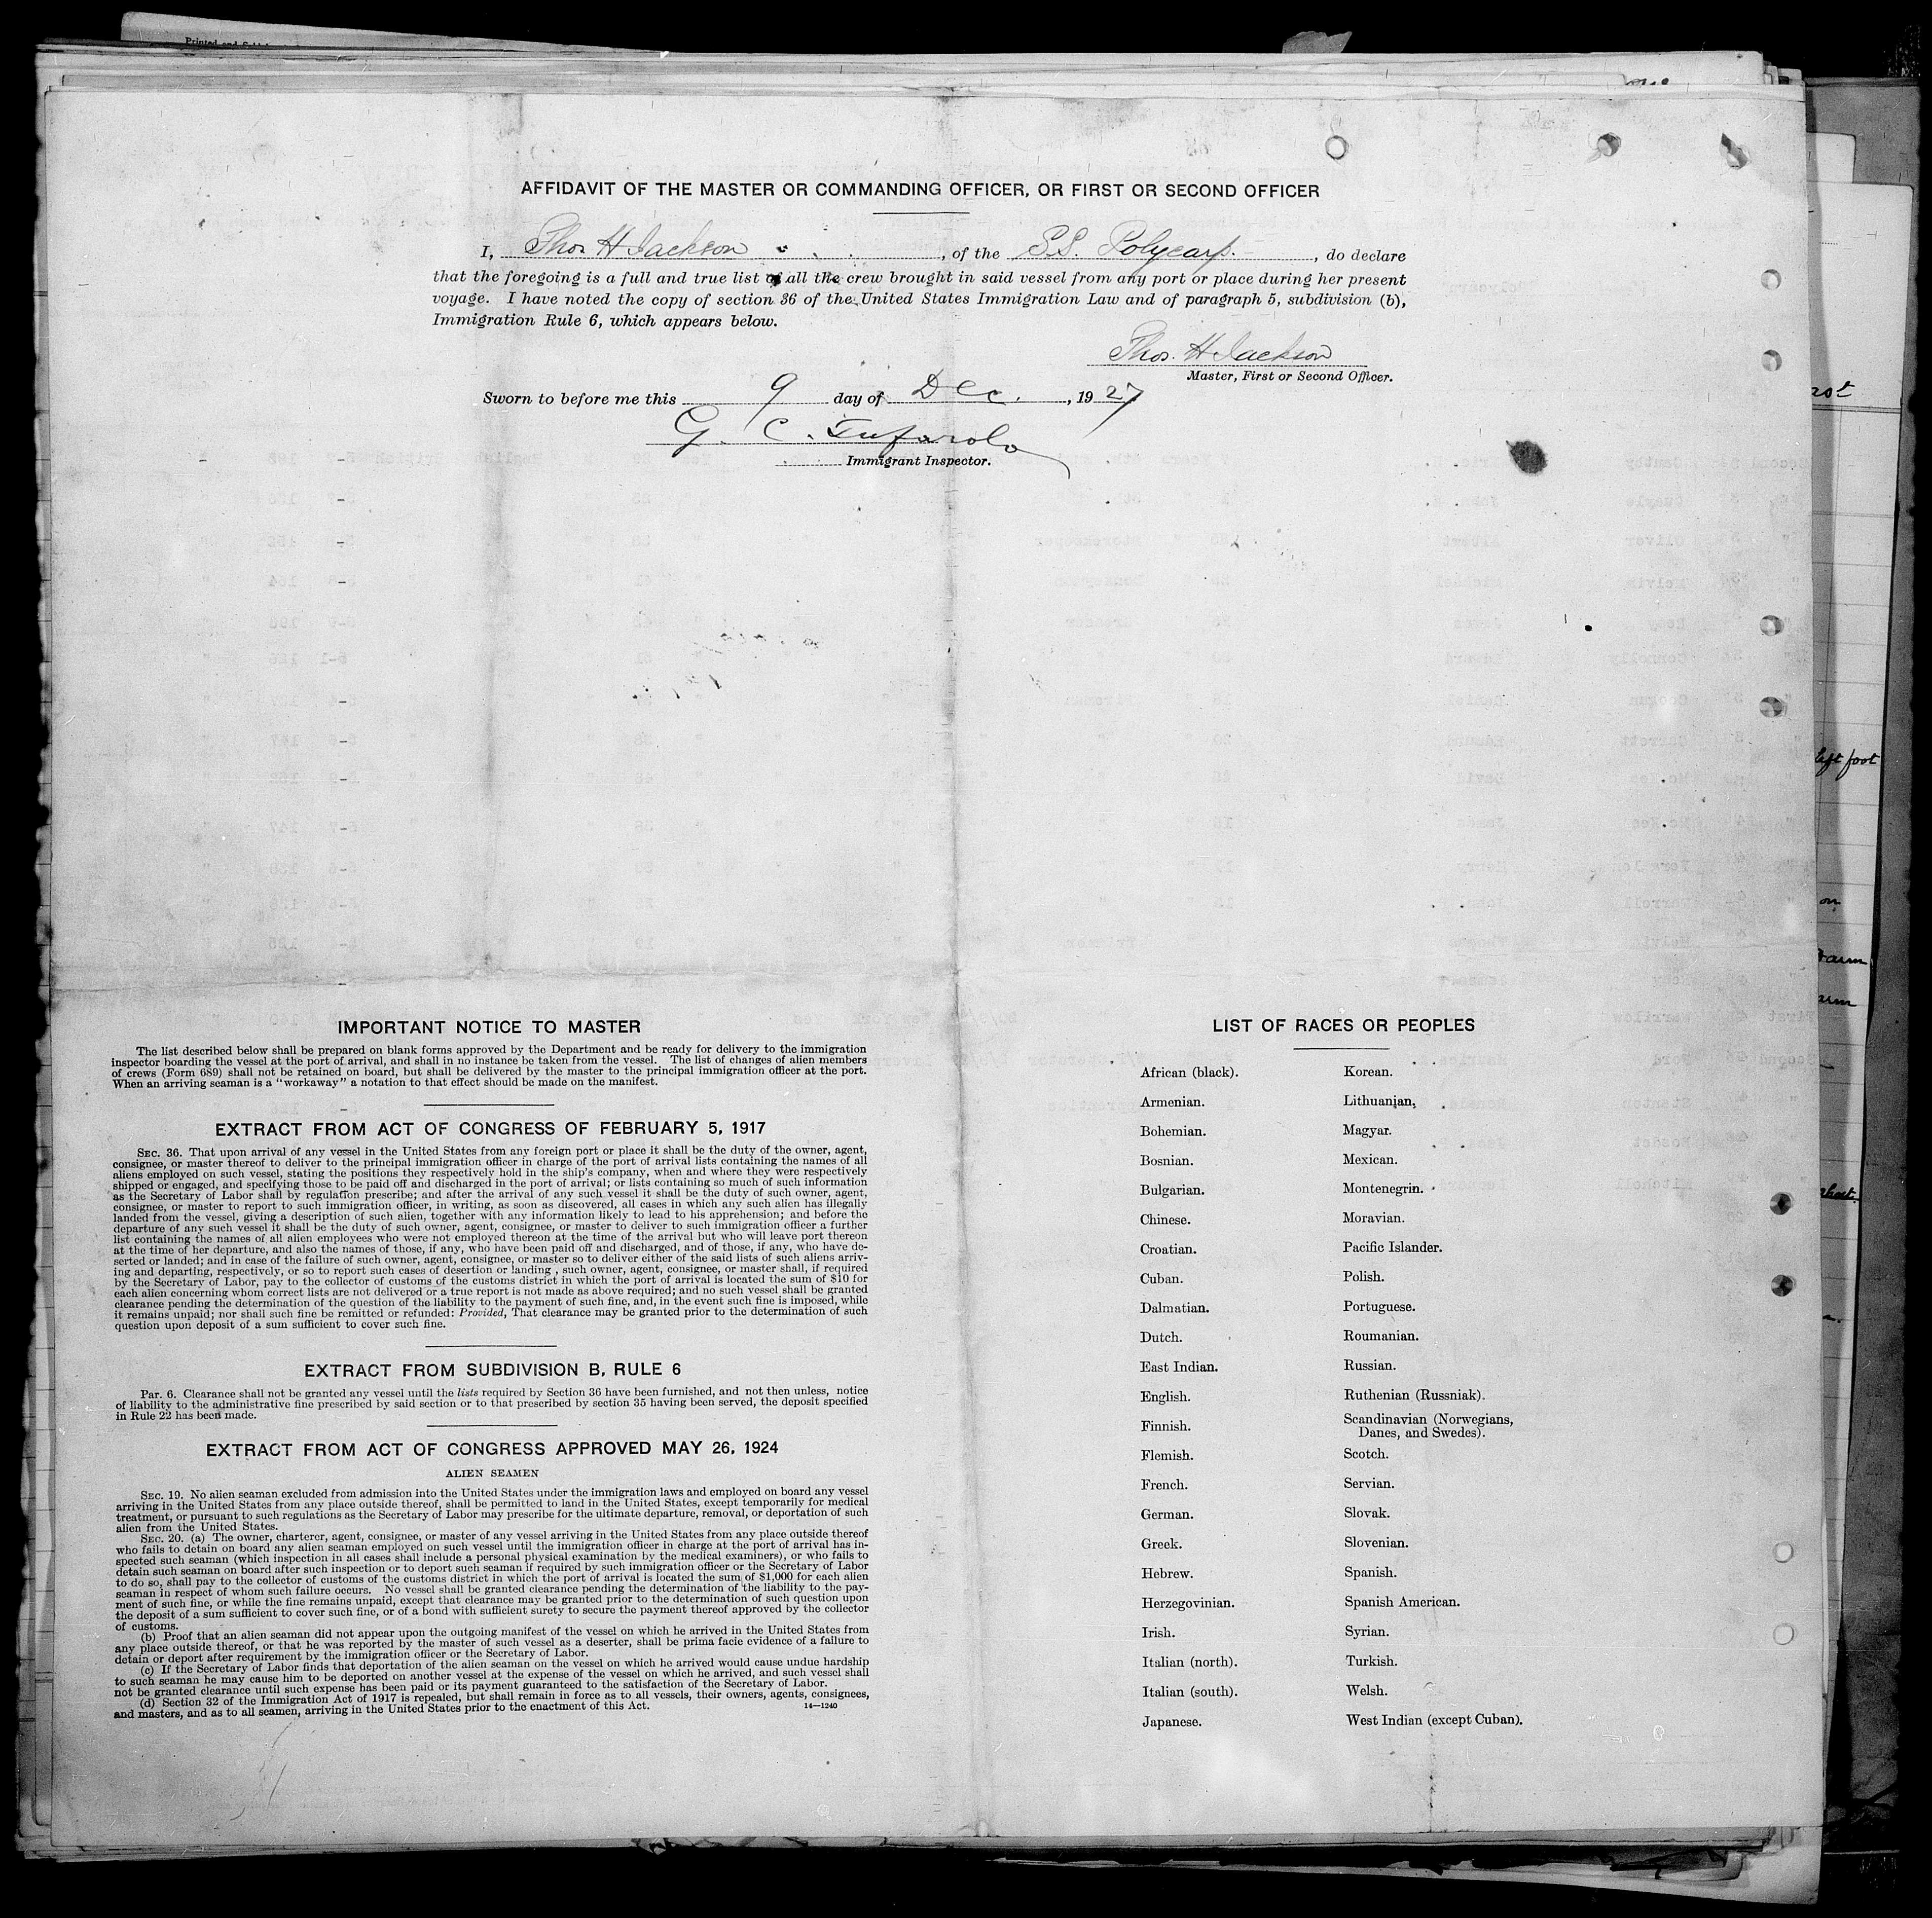 AFFIDAVIT OF THE MASTER OR COMMANDING OFFICER, OR FIRST OR SECOND OFFICER
I, Thos H Jackson, of the S.S. Polycarp., do declare
that the foregoing is a full and true list of all the crew brought in said vessel from any port or place during her present
voyage. I have noted the copy of section 36 of the United States Immigration Law and of paragraph 5, subdivision (b),
Immigration Rule 6, which appears below.
Thos. H Jackson
Master, First or Second Officer.
Sworn to before me this 9 day of Dec., 1927
G. C.
Immigrant Inspector.
IMPORTANT NOTICE TO MASTER
The list described below shall be prepared on blank forms approved by the Department and be ready for delivery to the immigration
inspector boarding the vessel at the port of arrival, and shall in no instance be taken from the vessel. The list of changes of alien members
of crews (Form 689) shall not be retained on board, but shall be delivered by the master to the principal immigration officer at the port.
When an arriving seaman is a "workaway" a notation to that effect should be made on the manifest.
EXTRACT FROM ACT OF CONGRESS OF FEBRUARY 5, 1917
SEC. 36. That upon arrival of any vessel in the United States from any foreign port or place it shall be the duty of the owner, agent,
consignee, or master thereof to deliver to the principal immigration officer in charge of the port of arrival lists containing the names of all
aliens employed on such vessel, stating the positions they respectively hold in the ship's company, when and where they were respectively
shipped or engaged, and specifying those to be paid off and discharged in the port of arrival; or lists containing so much of such information
as the Secretary of Labor shall by regulation prescribe; and after the arrival of any such vessel it shall be the duty of such owner, agent,
consignee, or master to report to such immigration officer, in writing, as soon as discovered, all cases in which any such alien has illegally
landed from the vessel, giving a description of such alien, together with any information likely to lead to his apprehension; and before the
departure of any such vessel it shall be the duty of such owner, agent, consignee, or master to deliver to such immigration officer a further
list containing the names of all alien employees who were not employed thereon at the time of the arrival but who will leave port thereon
at the time of her departure, and also the names of those, if any, who have been paid off and discharged, and of those, if any, who have de-
serted or landed; and in case of the failure of such owner, agent, consignee, or master so to deliver either of the said lists of such aliens arriv-
ing and departing, respectively, or so to report such cases of desertion or landing, such owner, agent, consignee, or master shall, if required
by the Secretary of Labor, pay to the collector of customs of the customs district in which the port of arrival is located the sum of $10 for
each alien concerning whom correct lists are not delivered or a true report is not made as above required; and no such vessel shall be granted
clearance pending the determination of the question of the liability to the payment of such fine, and, in the event such fine is imposed, while
it remains unpaid; nor shall such fine be remitted or refunded: Provided, That clearance may be granted prior to the determination of such
question upon deposit of a sum sufficient to cover such fine.
EXTRACT FROM SUBDIVISION B, RULE 6
Par. 6. Clearance shall not be granted any vessel until the lists required by Section 36 have been furnished, and not then unless, notice
of liability to the administrative fine prescribed by said section or to that prescribed by section 35 having been served, the deposit specified
in Rule 22 has been made.
EXTRACT FROM ACT OF CONGRESS APPROVED MAY 26, 1924
ALIEN SEAMEN
SEC. 19. No alien seaman excluded from admission into the United States under the immigration laws and employed on board any vessel
arriving in the United States from any place outside thereof, shall be permitted to land in the United States, except temporarily for medical
treatment, or pursuant to such regulations as the Secretary of Labor may prescribe for the ultimate departure, removal, or deportation of such
alien from the United States.
SEC. 20. (a) The owner, charterer, agent, consignee, or master of any vessel arriving in the United States from any place outside thereof
who fails to detain on board any alien seaman employed on such vessel until the immigration officer in charge at the port of arrival has in-
spected such seaman (which inspection in all cases shall include a personal physical examination by the medical examiners), or who fails to
detain such seaman on board after such inspection or to deport such seaman if required by such immigration officer or the Secretary of Labor
to do so, shall pay to the collector of customs of the customs district in which the port of arrival is located the sum of $1,000 for each alien
seaman in respect of whom such failure occurs. No vessel shall be granted clearance pending the determination of the liability to the pay-
ment of such fine, or while the fine remains unpaid, except that clearance may be granted prior to the determination of such question upon
the deposit of a sum sufficient to cover such fine, or of a bond with sufficient surety to secure the payment thereof approved by the collector
of customs.
(b) Proof that an alien seaman did not appear upon the outgoing manifest of the vessel on which he arrived in the United States from
any place outside thereof, or that he was reported by the master of such vessel as a deserter, shall be prima facie evidence of a failure to
detain or deport after requirement by the immigration officer or the Secretary of Labor.
(c) If the Secretary of Labor finds that deportation of the alien seaman on the vessel on which he arrived would cause undue hardship
to such seaman he may cause him to be deported on another vessel at the expense of the vessel on which he arrived, and such vessel shall
not be granted clearance until such expense has been paid or its payment guaranteed to the satisfaction of the Secretary of Labor.
(d) Section 32 of the Immigration Act of 1917 is repealed, but shall remain in force as to all vessels, their owners, agents, consignees,
and masters, and as to all seamen, arriving in the United States prior to the enactment of this Act. 14—1240
LIST OF RACES OR PEOPLES
African (black). Korean.
Armenian. Lithuanian.
Bohemian. Magyar.
Bosnian. Mexican.
Bulgarian. Montenegrin.
Chinese. Moravian.
Croatian. Pacific Islander.
Cuban. Polish.
Dalmatian. Portuguese.
Dutch. Roumanian.
East Indian. Russian.
English. Ruthenian (Russniak).
Finnish. Scandinavian (Norwegians,
Danes, and Swedes).
Flemish. Scotch.
French. Servian.
German. Slovak.
Greek. Slovenian.
Hebrew. Spanish.
Herzegovinian. Spanish American.
Irish. Syrian.
Italian (north). Turkish.
Italian (south). Welsh.
Japanese. West Indian (except Cuban).
left foot
arm